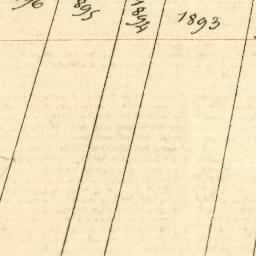 96
895
1894
1893